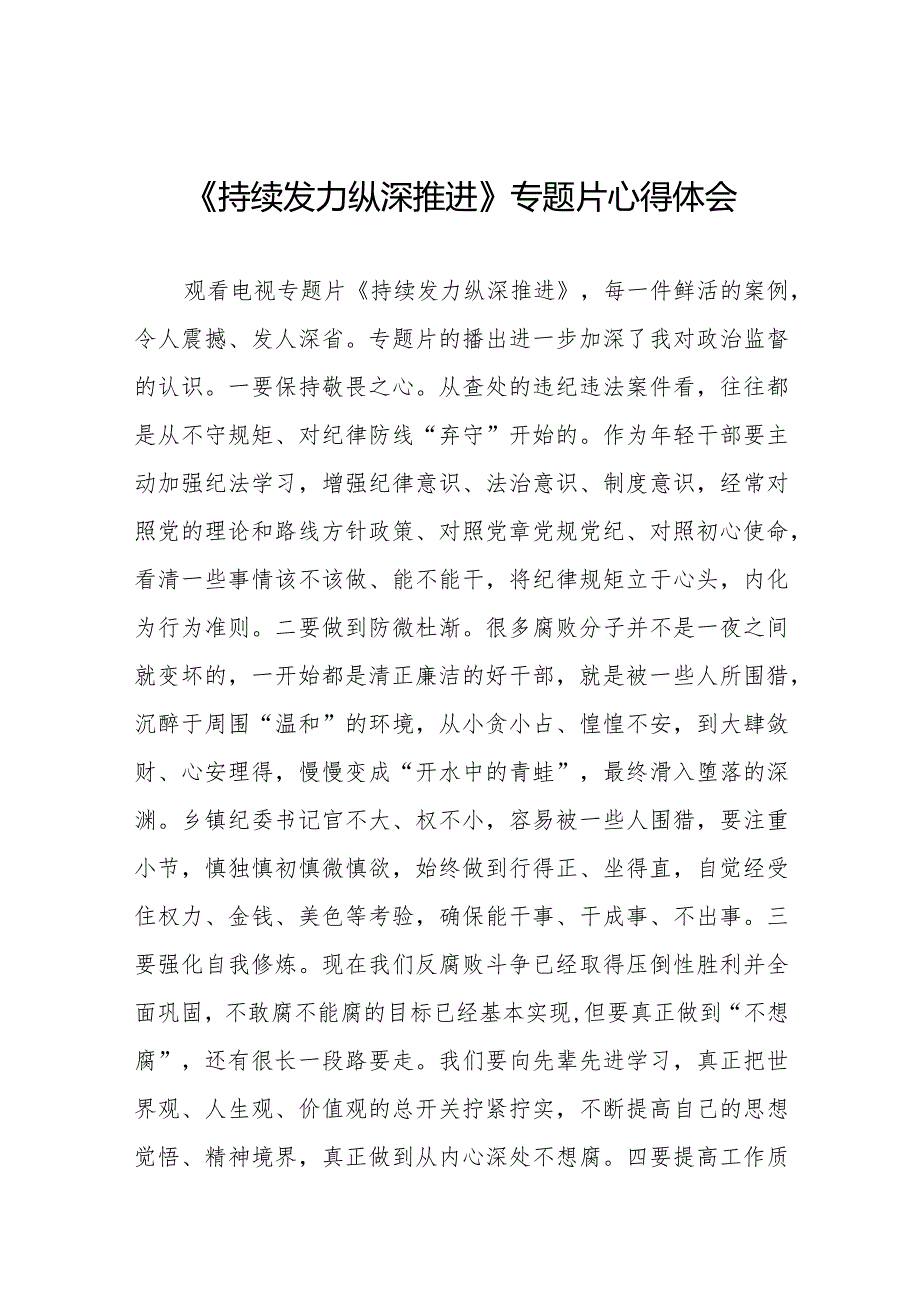 《持续发力纵深推进》专题片心得体会
观看电视专题片《持续发力纵深推进》，每一件鲜活的案例，
令人震撼、发人深省。专题片的播出进一步加深了我对政治监督
的认识。一要保持敬畏之心。从查处的违纪违法案件看，往往都
是从不守规矩、对纪律防线“弃守”开始的。作为年轻干部要主
动加强纪法学习，增强纪律意识、法治意识、制度意识，经常对
照党的理论和路线方针政策、对照党章党规党纪、对照初心使命，
看清一些事情该不该做、能不能干，将纪律规矩立于心头，内化
为行为准则。二要做到防微杜渐。很多腐败分子并不是一夜之间
就变坏的，一开始都是清正廉洁的好干部，就是被一些人所围猎，
沉醉于周围“温和”的环境，从小贪小占、惶惶不安，到大肆敛
财、心安理得，慢慢变成“开水中的青蛙”，最终滑入堕落的深
渊。乡镇纪委书记官不大、权不小，容易被一些人围猎，要注重
小节，慎独慎初慎微慎欲，始终做到行得正、坐得直，自觉经受
住权力、金钱、美色等考验，确保能干事、干成事、不出事。三
要强化自我修炼。现在我们反腐败斗争已经取得压倒性胜利并全
面巩固，不敢腐不能腐的目标已经基本实现,但要真正做到“不想
腐”，还有很长一段路要走。我们要向先辈先进学习，真正把世
界观、人生观、价值观的总开关拧紧拧实，不断提高自己的思想
觉悟、精神境界，真正做到从内心深处不想腐。四要提高工作质